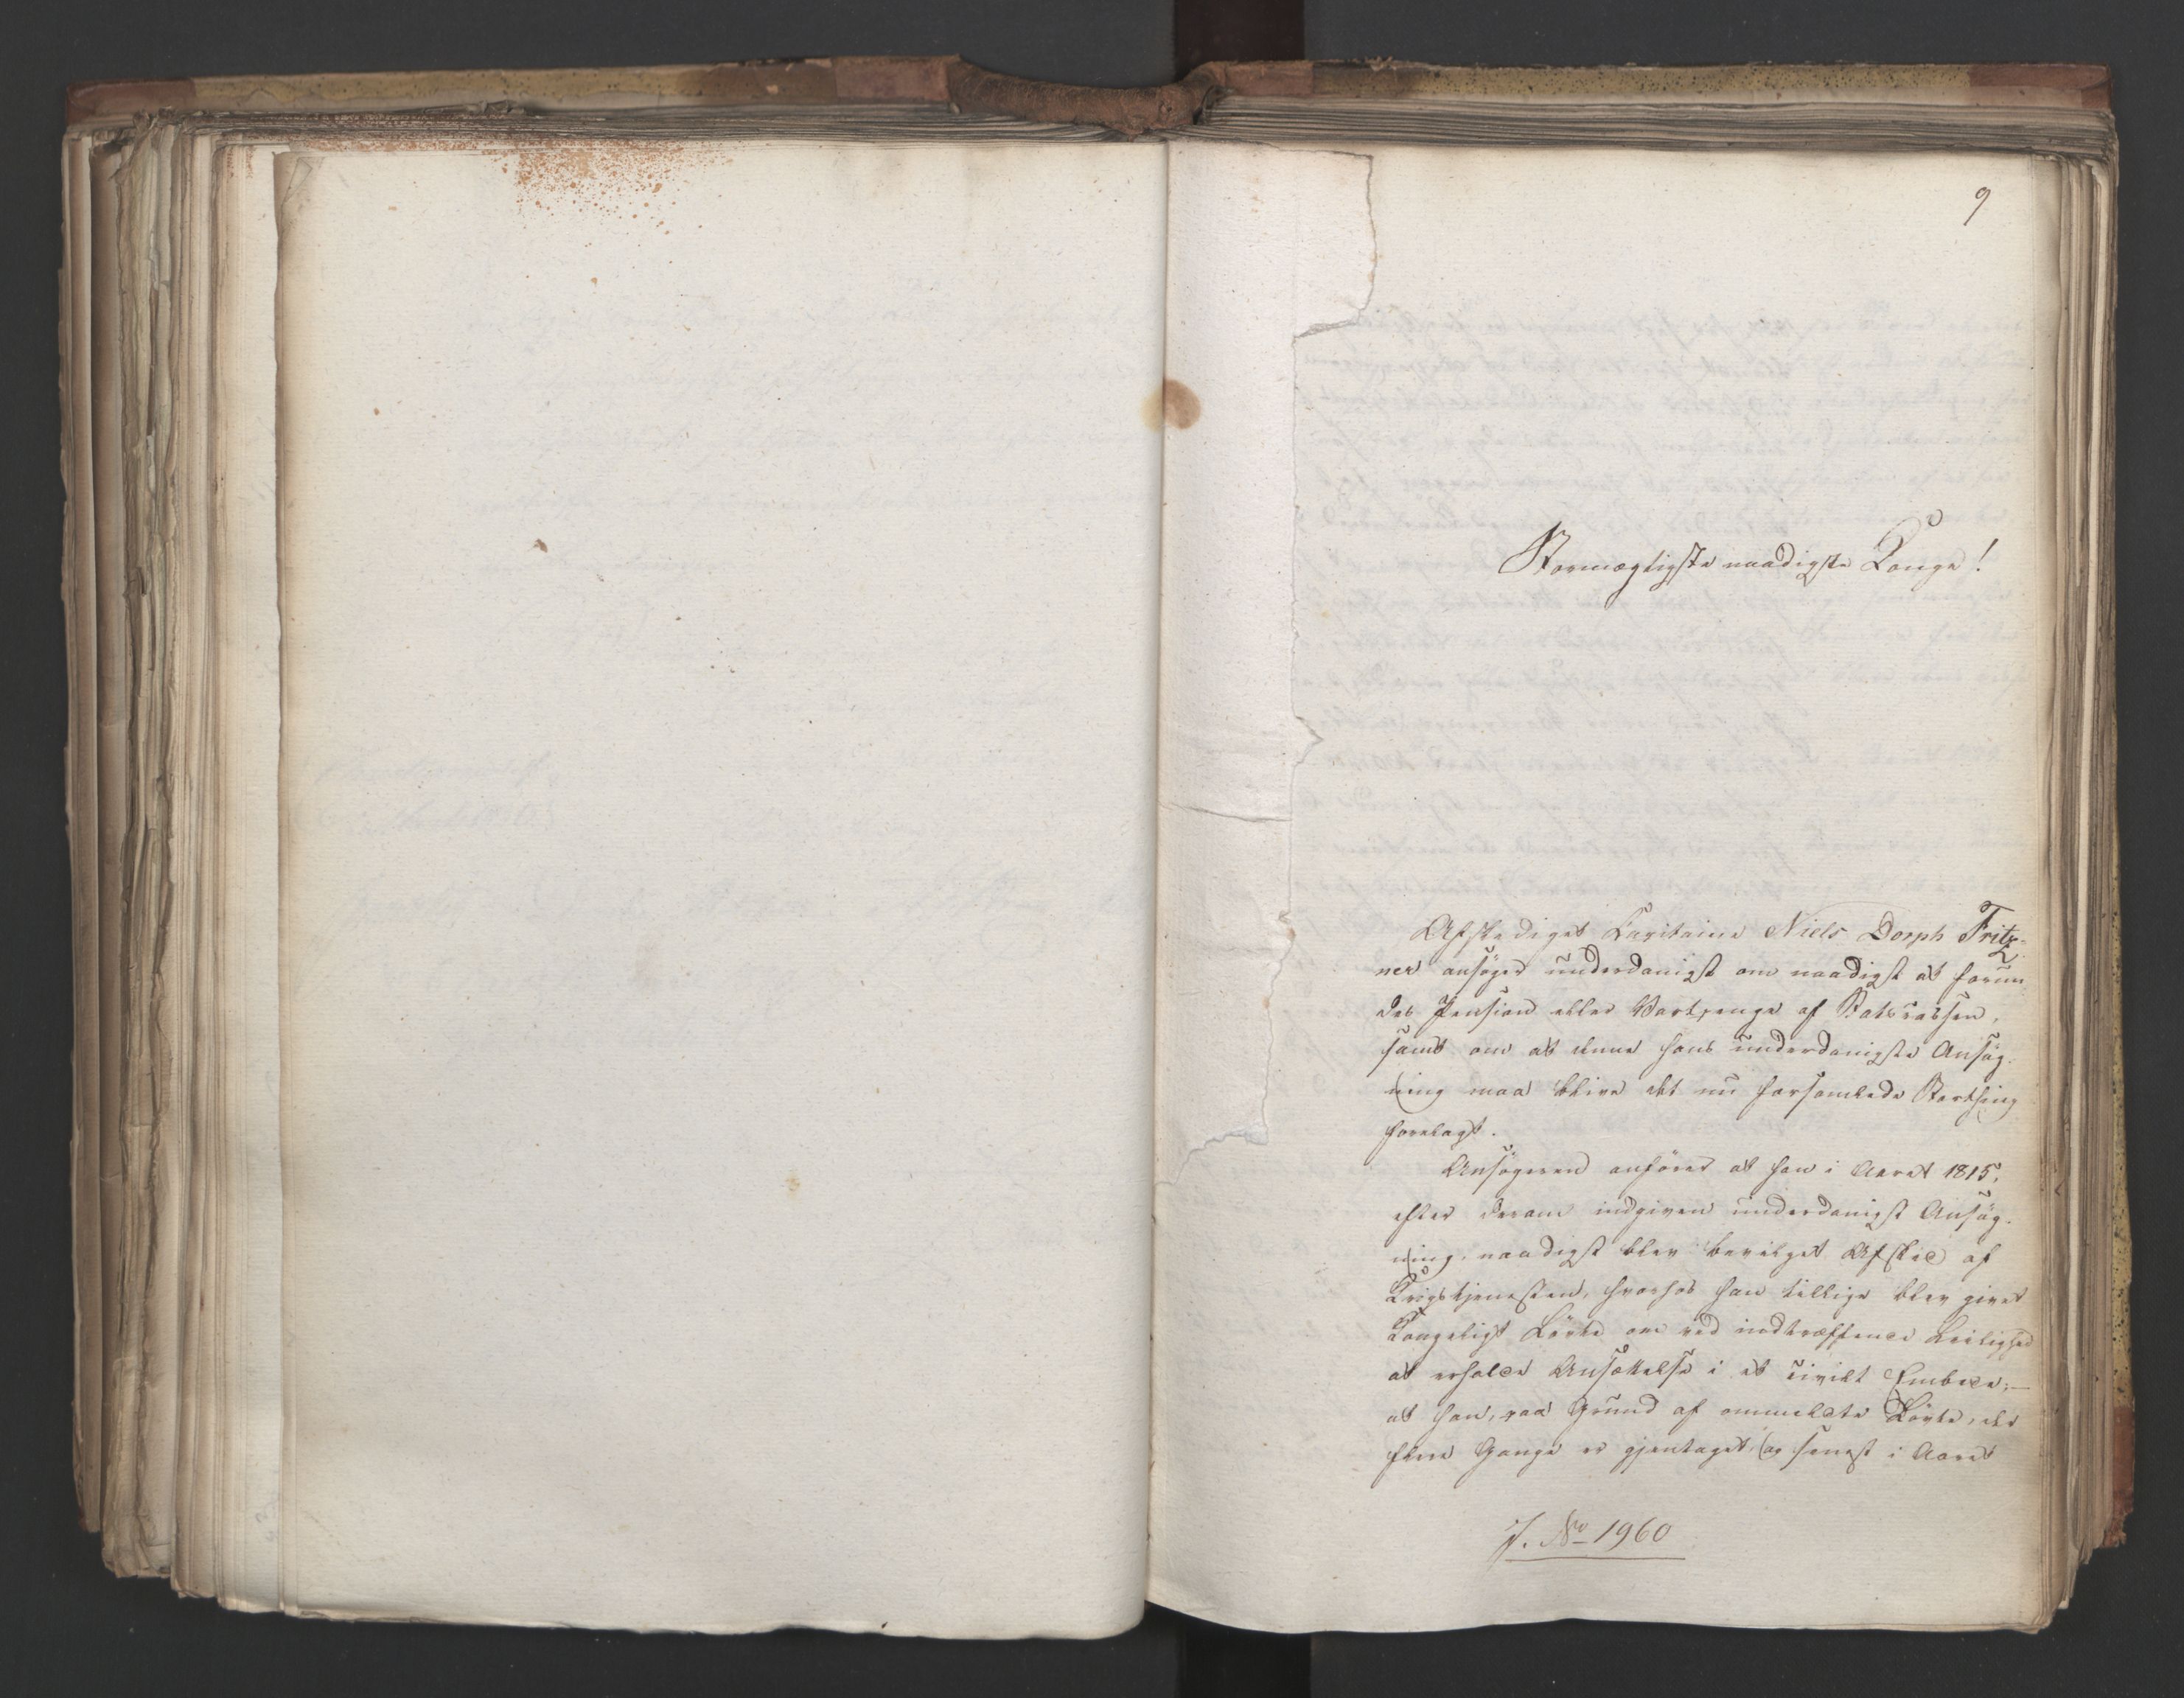 9
Stormægtigste naadigste Konge!
Afskediget Capitaine Niels Dorph Fritz-
ner ansøger underdanigst om naadigst at forun-
des Pension eller Vartpenge af Statscassen,
samt om at denne hans underdanigste Ansøg-
ning maa blive det nu forsamlede Storthing
forelagt.
Ansøgeren anfører at han i Aaret 1815,
efter derom indgiven underdanigst Ansøg-
ning, naadigst blev bevilget Afsked af
Krigstjenesten, hvorhos han tillige blev givet
Kongeligt Løvte om ved indtræffende Leilighed
at erholde Ansættelse i et civilt Embede;—
at han, paa Grund af ommeldte Løvte, der
flere Gange er gjentaget, og senest i Aaret
J. No 1960